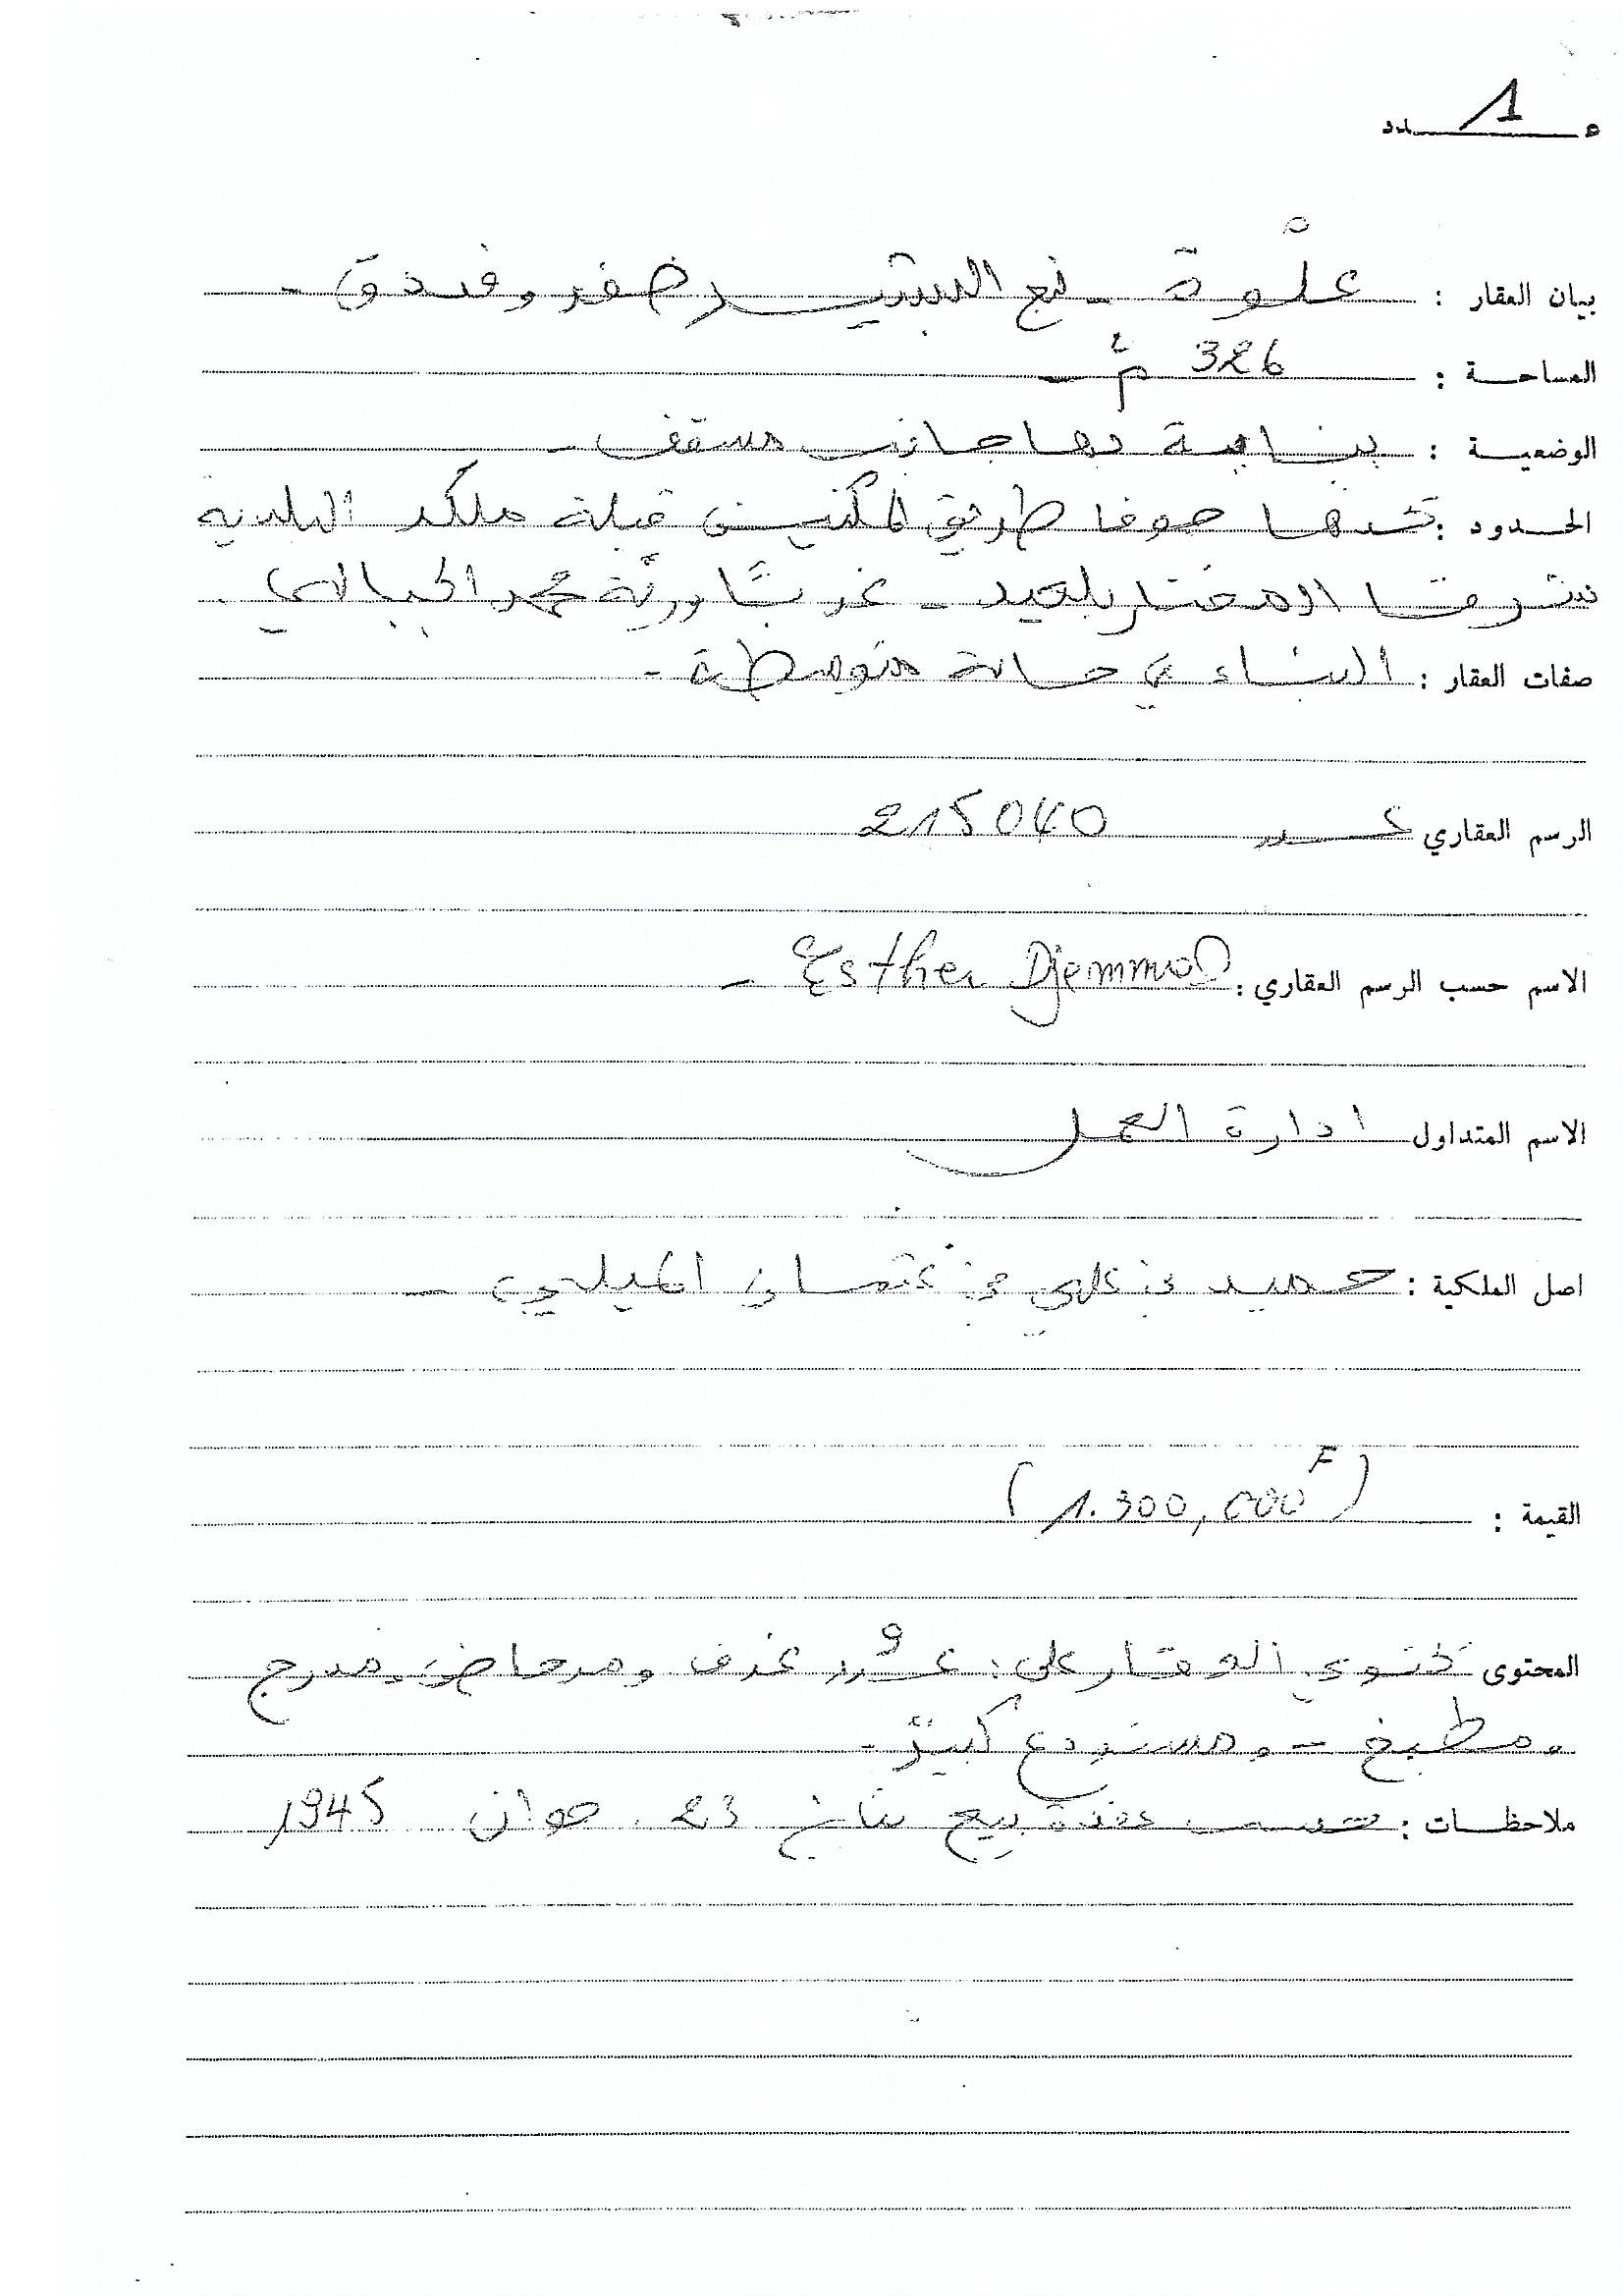 عـ 1 ـدد
بيان العقار : علوة - نهج البشير صفر وفندق -
المساحة : 326 م²
الوضعية : بناية بها جانب مسقف -
الحدود : تحدها جوفا طريق المكنين قبلة ملك البلدية
شرقا المختار بلعيد - غربا ورثة محمد الجبالي .
صفات العقار : البناء في حالة متوسطة -
الرسم العقاري عـدد 215040
الاسم حسب الرسم العقاري : Esther Djemmal -
الاسم المتداول ادارة العمل
اصل الملكية : حميد بن علي بن عثمان -
القيمة : (1.300,000 F)
المحتوى تحتوي العقار على : عـ 9 ـدد غرف ومرحاض ومدرج
ومطبخ - ومستودع كبير -
ملاحظات : حسب عقدة بيع بتاريخ 23 جوان 1945